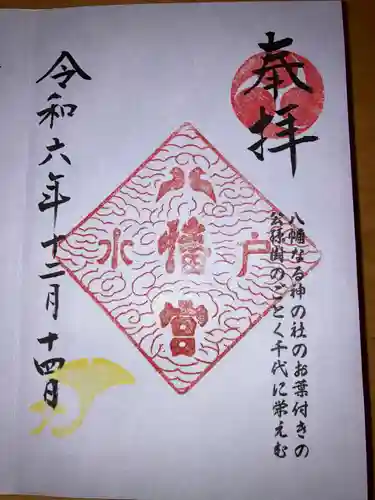 奉拝
八幡なる神の社のお葉付きの
公孫樹のごとく千代に栄えむ
水戸
八幡宮
令和六年十二月十四日